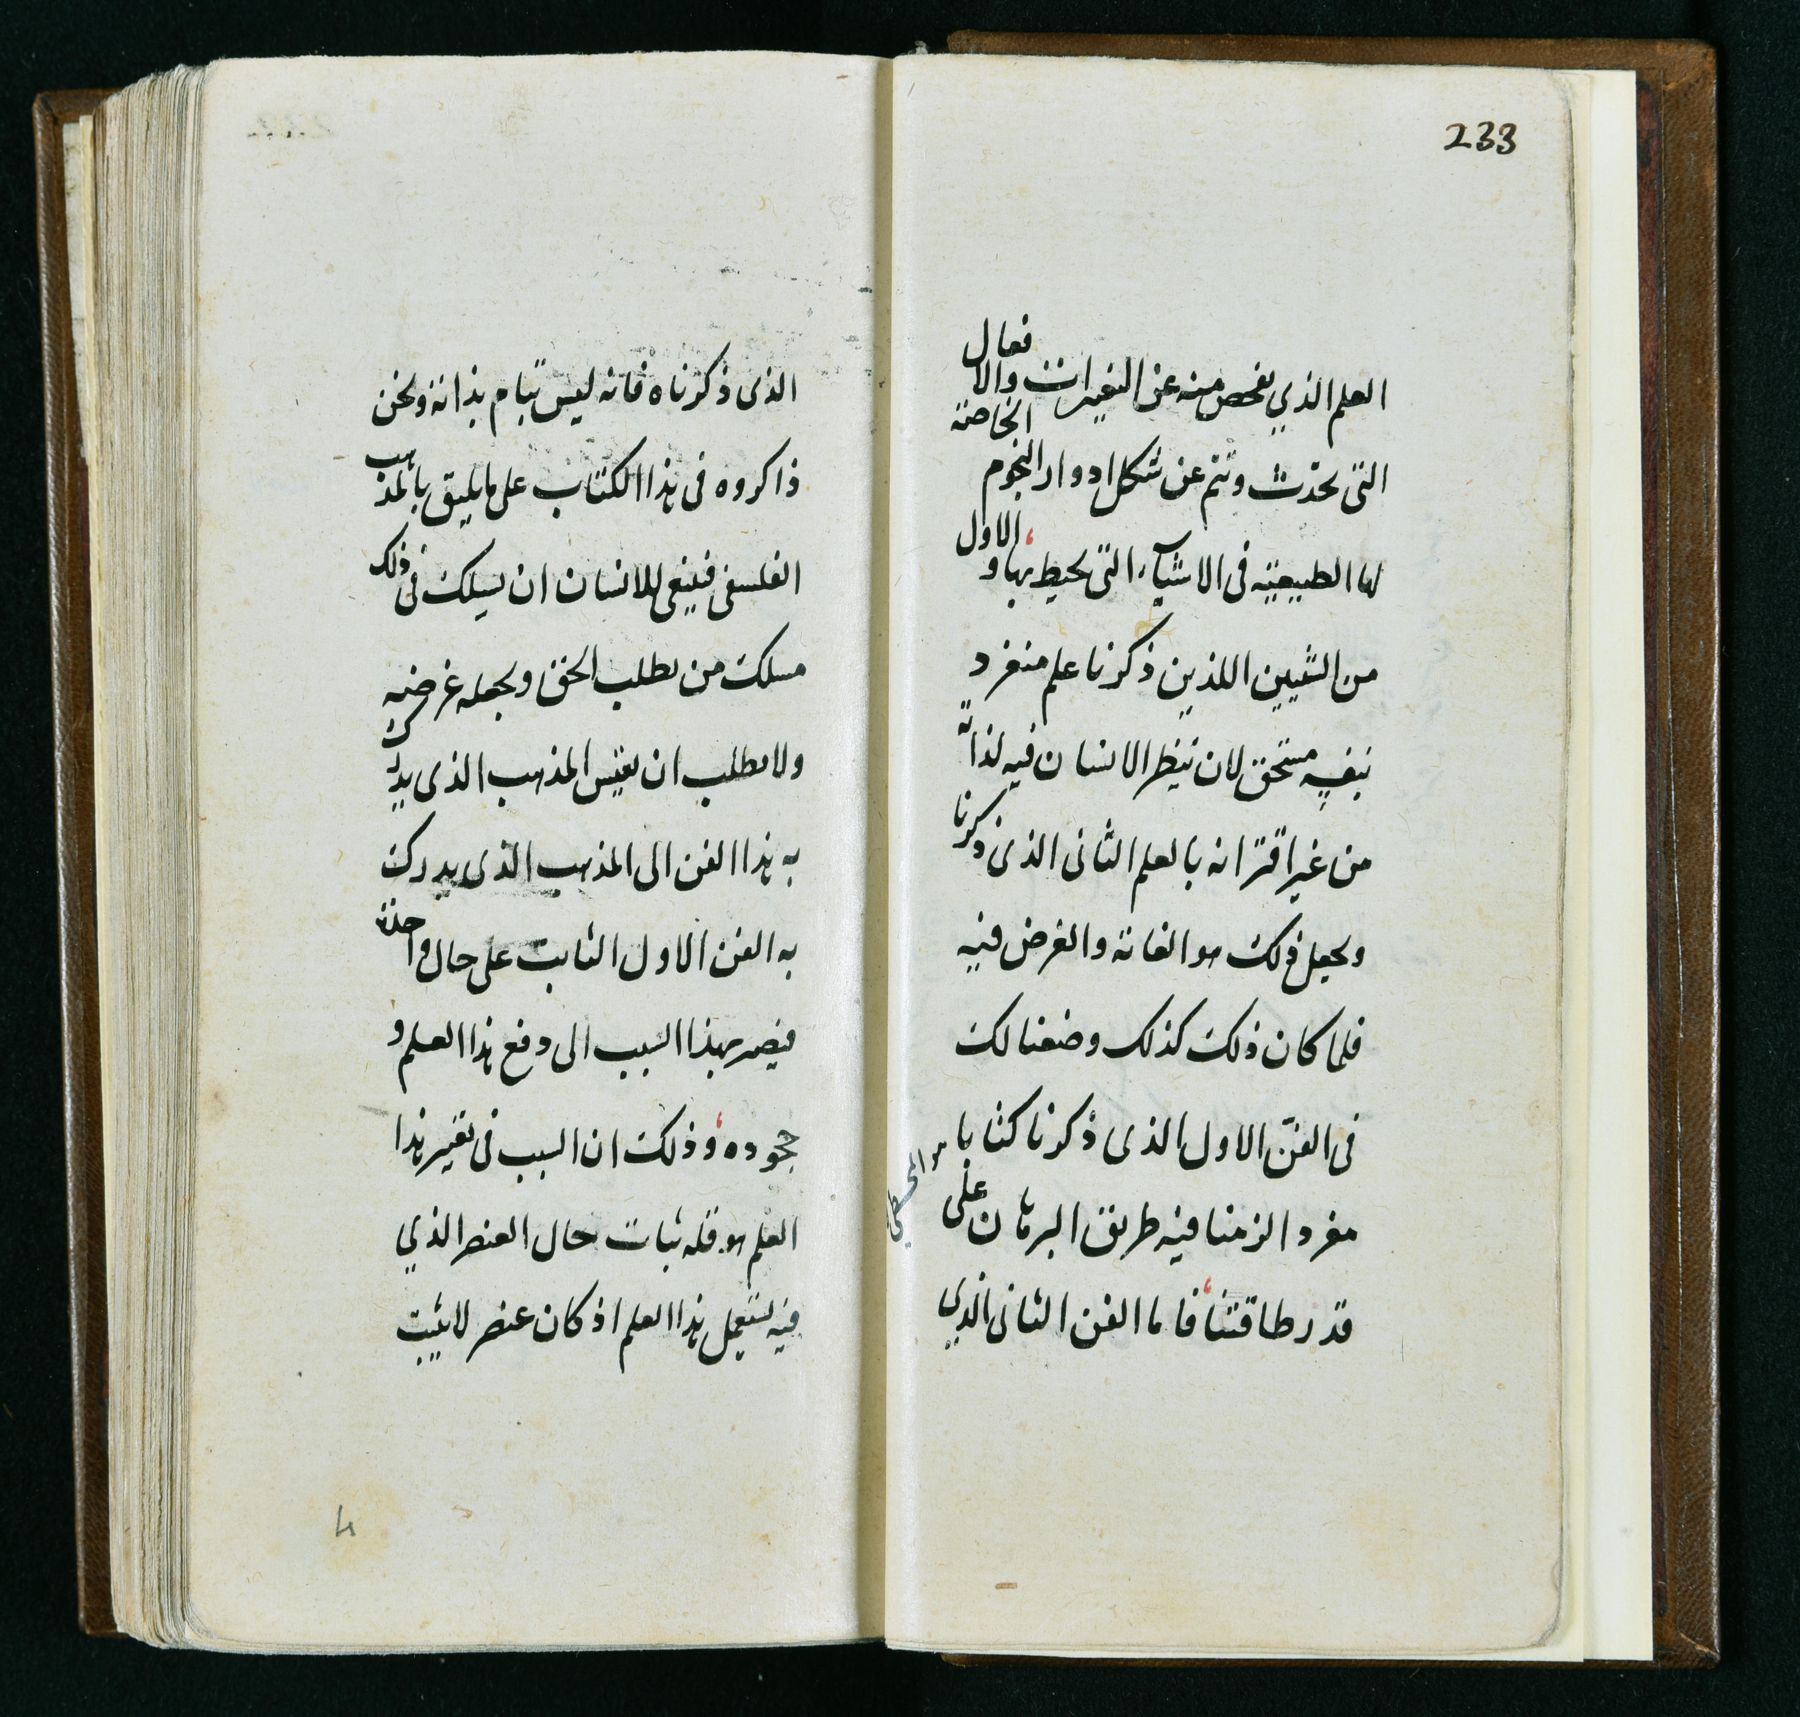 233
العلم الذي يفحص منه عن التغيرات والافعال
الخاصة
التى تحدث وتتم عن شكل ادوار النجوم
لها الطبيعية فى الاشياء التى تحيط بها والاول
من الشيين اللذين ذكرنا علم منفرد
بنفسه مستحق لان ينظر الانسان فيه لذاته
من غير اقترانه بالعلم الثانى الذى ذكرنا
ويجعل ذلك هو الغاية والغرض فيه
فلما كان ذلك كذلك وضعنا لك
فى الفنّ الاول الذى ذكرنا كتابا
هو المجسطي
مفردا لزمنا فيه طريق البرهان على
قدر طاقتنا، فاما الفن الثانى الذي
الذى ذكرناه فانه ليس بتام بذاته ونحن
ذاكروه فى هذا الكتاب على ما يليق بالمذهب
الفلسفى فينبغى للانسان ان يسلك فى ذلك
مسلك من يطلب الحق ويجعله غرضه
ولا يطلب ان يقيس المذهب الذى يدرك
به هذا الفن الى المذهب الذى يدرك
به الفن الاول الثابت على حال واحدة
فيصير بهذا السبب الى دفع هذا العلم و
جحوده، وذلك ان السبب فى تغير هذا
العلم هو قلة ثبات حال العنصر الذي
فيه يستعمل هذا العلم اذ كان عنصر لا يثبت